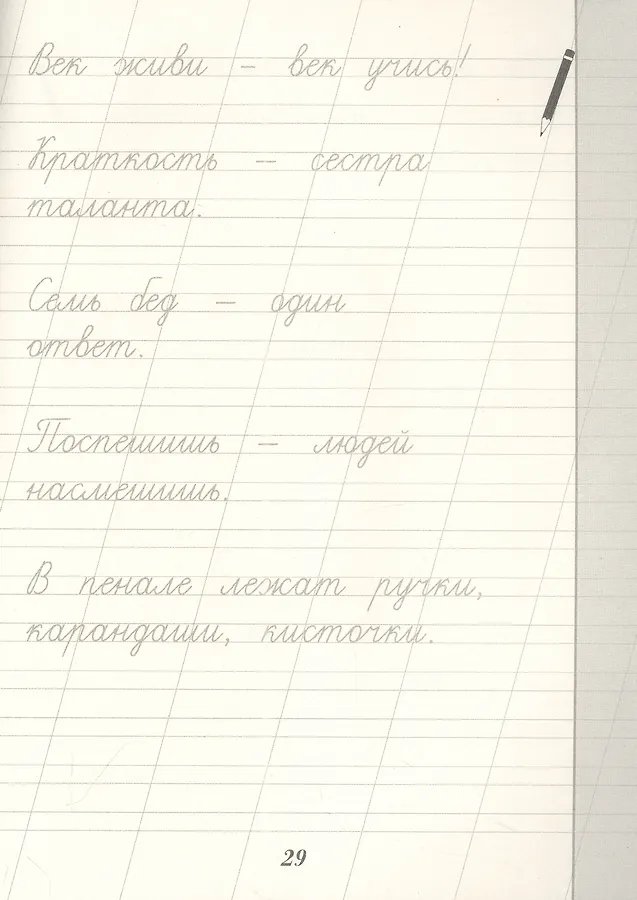 Век живи – век учись!
Краткость – сестра
таланта.
Семь бед – один
ответ.
Поспешишь – людей
насмешишь.
В пенале лежат ручки,
карандаши, кисточки.
29